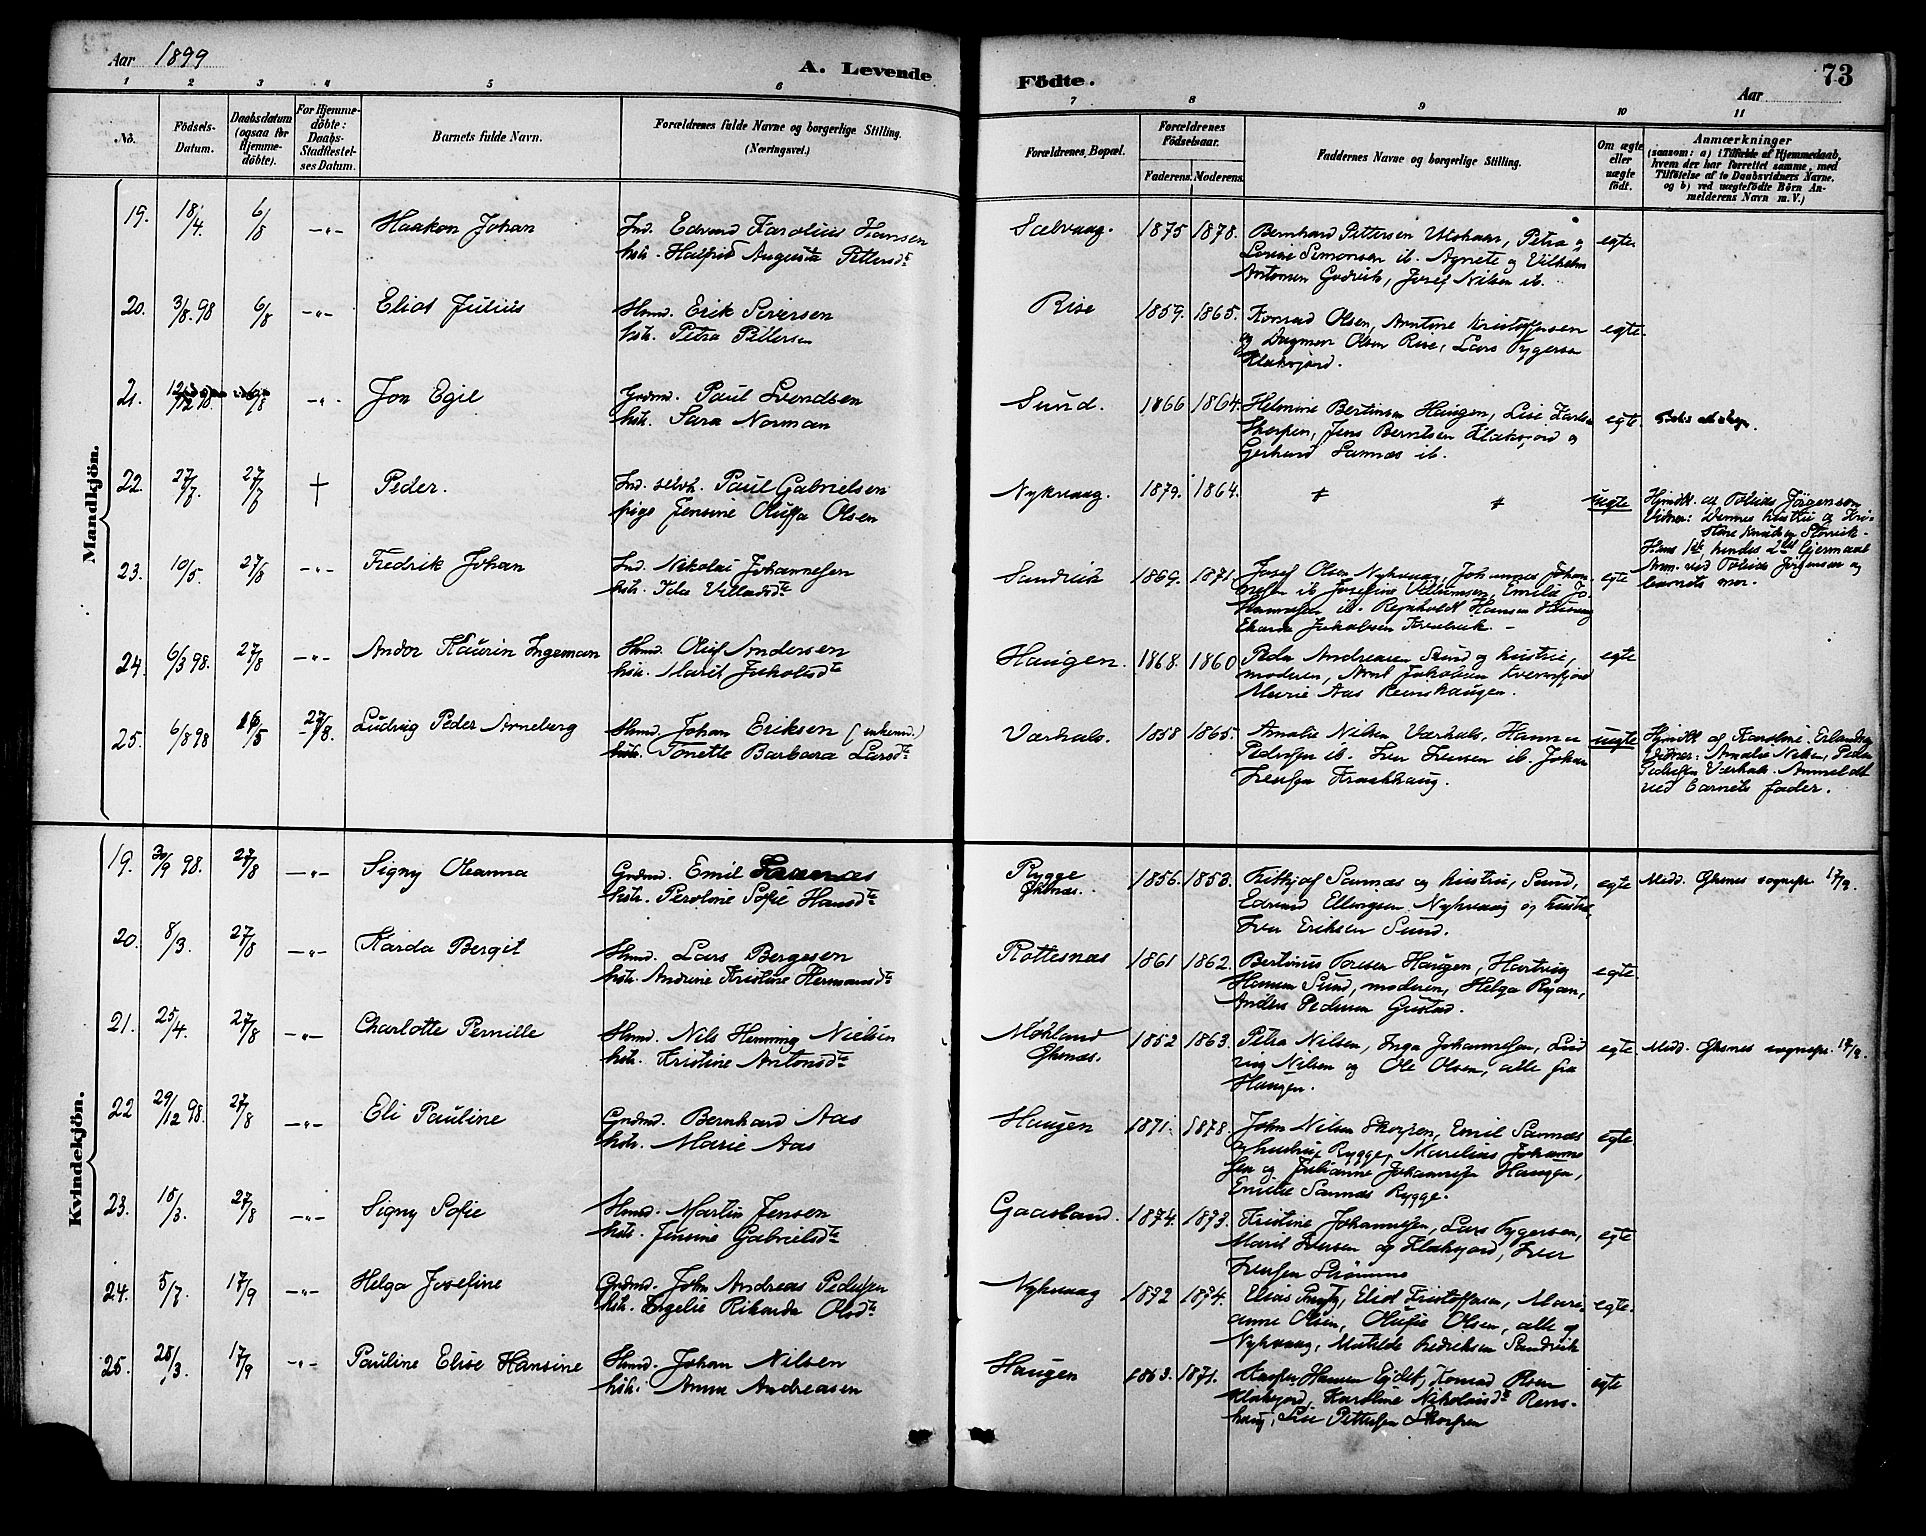 Aar 1899
A. Levende Födte.
73
Aar
1 2 3 4 5 6 7 8 9 10 11
No.
Födsels-Datum.
Daabsdatum (ogsaa for Hjemmedöbte).
For Hjemmedöbte: Daabs-Stadfæstelses Datum.
Barnets fulde Navn.
Forældrenes fulde Navne og borgerlige Stilling.
(Næringsvei.)
Forældrenes Bopæl.
Forældrenes Födselsaar.
Faderens. Moderens.
Faddernes Navne og borgerlige Stilling.
Om ægte eller uægte födt.
Anmærkninger
(saasom: a) i Tilfælde af Hjemmedaab,
hvem der har forrettet samme, med
Tilföielse af to Daabsvidners Navne,
og b) ved uægtefödte Börn Anmelderens Navn m. V.)
Mandkjön.
19. 18/4. 6/8 -"- Haakon Johan
Ind. Edvard Karolius Hansen
hstr. Halfrid Augusta Pettersdt
Sælvaag. 1875 1878.
Bernhard Pettersen, Petra og
Simonsen ib. Agnete og Vilhelm
Antonsen, Josef Nilsen ib.
egte
20. 3/8.98 6/8 -"- Elias Julius
Hmd. Erik Siversen
hstr. Petra Pettersen
Rise 1859. 1865.
Konrad Olsen, Arntine Kristoffersen
og Dagmar Olsen Rise, Lars Tygersen
Klakjord.
egte.
21. 6/8 -"- Jon Egil
Grdmd. Paul Svendsen
hstr. Sara Norman
Sund. 1866 1864.
Helmine Bertinsen Haugen, Lise Karls
Skorpen, Jens Berntsen Klaksjord og
Gerhard Sannæs ib.
egte.
22. 27/7. 27/7 + Peder.
Ind. selvh. Paul Gabrielsen
pige Jensine Olufa Olsen
Nykvaag. 1879. 1864.
uegte
Hjmdt. af Tobias Jörgensen
Vidner: Dennes hustru og Kri-
stine Knudsen
Hans 1ste, hendes 2det leiermaal
Anm. ved Tobias Jörgensen og
barnets mor.
23. 10/5. 27/8 -"- Fredrik Johan
Ind. Nikolai Johannesen
hstr. Ida Villadsdt
Sandvik 1869. 1871.
Josef Olsen Nykvaag, Johannes Johan-
nesen ib. Josefine Villumsen, Emilie Jo-
hannesen ib. Reinholdt Hansen
Jakobsen
egte
24. 6/3 98. 27/8 -"- Andor Kaurin Ingeman
Hmd. Oluf Andersen
hstr. Marit Jakobsdt
Haugen. 1868. 1860
Peder Andreasen Sund og hustru,
moderen, Arnt Jakobsen Kvernfjord
Marie Aas Renshaugen.
egte
25. 6/8 98 16/5 27/8. Ludvig Peder Arneberg
Hmd. Johan Eriksen (enkemd.)
hstr. Tonette Barbara Larsdt
Værhals. 1858 1865.
Amalie Nilsen Værhals, Hanna
Pedersen ib. Iver Iversen ib. Johan
Iversen Kraakhaug.
uegte
Hjmdt. af Karoline Erlandsen
Vidner: Amalie Nilsen, Peder
Pedersen Værhals. Anmeldt
ved barnets fader.
Kvindekjön.
19. 30/9 98. 27/8 -"- Signy Oleanna
Grdmd. Emil Sannæs
hstr. Peroline Sofie Hansdt
Rygge
Øksnæs. 1856. 1853.
Fritjof Sannæs og hustru, Sund,
Edvard Ellingsen Nykvaag og hustru,
Iver Eriksen Sund.
egte Medd. Øksnes sognepr. 17/9.
20. 8/3. 27/8 -"- Karda Bergit
Hmd. Lars Bergesen
hstr. Andrine Kristine Hermansdt
Rottesnæs 1861 1862.
Bertinus Toresen Haugen, Hartvig
Hansen Sund, moderen, Helga Ryan,
Anders Pedersen Gustad.
egte.
21. 25/4. 27/8 -"- Charlotte Pernille
Hmd. Nils Henning Nielsen
hstr. Kristine Antonsdt
Møkland
Øksnæs. 1852 1863.
Petra Nilsen, Inga Johannesen, Lud
vig Nilsen og Ole Olsen, alle fra
Haugen.
egte Medd. Øksnes sognepr. 17/9.
22 29/12 98. 27/8 -"- Eli Pauline
Grdmd. Bernhard Aas
hstr. Marie Aas
Haugen 1871. 1878.
John Nilsen Skorpen, Emil Sannæs
og hustru Rygge, Marelius Johanne-
sen og Julianne Johannesen Haugen,
Emilie Sannæs Rygge.
egte
23. 15/3. 27/8 -"- Signy Sofie
Hmd. Martin Jensen
hstr. Jensine Gabrielsdt
Gaasland. 1874. 1873.
Kristine Johannesen, Lars Tygersen,
Marit Iversen og Klaksjord, Iver
Iversen Strømmo
egte
24. 5/7. 17/9 -"- Helga Josefine
Grdmd. John Andreas Pedersen
hstr. Engelie Rikarda Olsdt
Nykvaag 1872 1874.
Elias, Elid Kristoffersen, Mari-
anne Olsen, Olufie Olsen, alle af
Nykvaag, Matilde Fredriksen Sandvik
egte.
25. 28/3. 17/9 -"- Pauline Elise Hansine
Hmd. Johan Nilsen
hstr. Anna Andreasen
Haugen 1863. 1871.
Kasper Hansen Eidet, Konrad Olsen
Klaksjord, Karoline Nikolaisdt Rens-
haug, Lise Pettersen Skorpen
egte